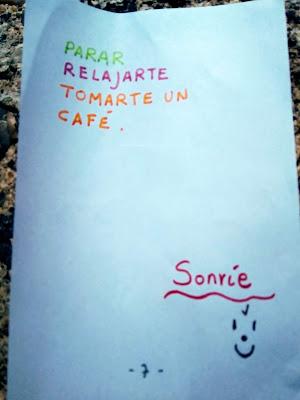 PARAR
RELAJARTE
TOMARTE UN
CAFÉ.
Sonríe
-7-